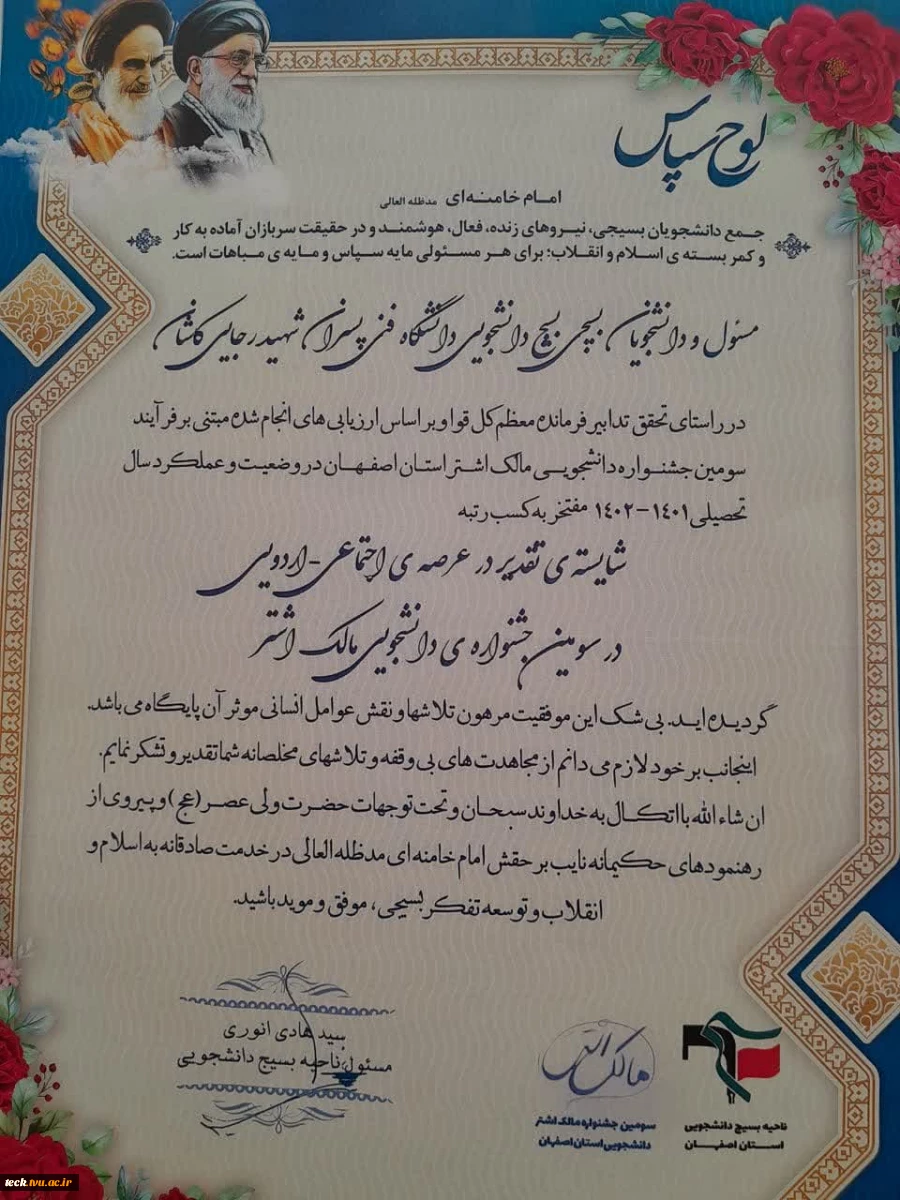 لوح سپاس
امام خامنه‌ای مدظله العالی
جمع دانشجویان بسیجی، نیروهای زنده، فعال، هوشمند و در حقیقت سربازان آماده به کار
و کمر بسته ی اسلام و انقلاب؛ برای هر مسئولی مایه سپاس و مایه ی مباهات است.
مسئول و دانشجویان بسیجی بسیج دانشجویی دانشگاه فنی پسران شهید رجایی کاشان
در راستای تحقق تدابیر فرمانده معظم کل قوا و بر اساس ارزیابی های انجام شده مبتنی بر فرآیند
سومین جشنواره دانشجویی مالک اشتر استان اصفهان در وضعیت و عملکرد سال
تحصیلی ۱۴۰۱-۱۴۰۲ مفتخر به کسب رتبه
شایسته ی تقدیر در عرصه ی اجتماعی-اردویی
در سومین جشنواره ی دانشجویی مالک اشتر
گردیده اید. بی شک این موفقیت مرهون تلاشها و نقش عوامل انسانی موثر آن پایگاه می باشد.
اینجانب بر خود لازم می دانم از مجاهدت های بی وقفه و تلاشهای مخلصانه شما تقدیر و تشکر نمایم.
ان شاء الله با اتکال به خداوند سبحان و تحت توجهات حضرت ولی عصر (عج) و پیروی از
رهنمودهای حکیمانه نایب بر حقش امام خامنه ای مدظله العالی در خدمت صادقانه به اسلام و
انقلاب و توسعه تفکر بسیجی، موفق و موید باشید.
سید هادی انوری
مسئول ناحیه بسیج دانشجویی
مالک اشتر
سومین جشنواره مالک اشتر
دانشجویی استان اصفهان
ناحیه بسیج دانشجویی
استان اصفهان
tech.tvu.ac.ir